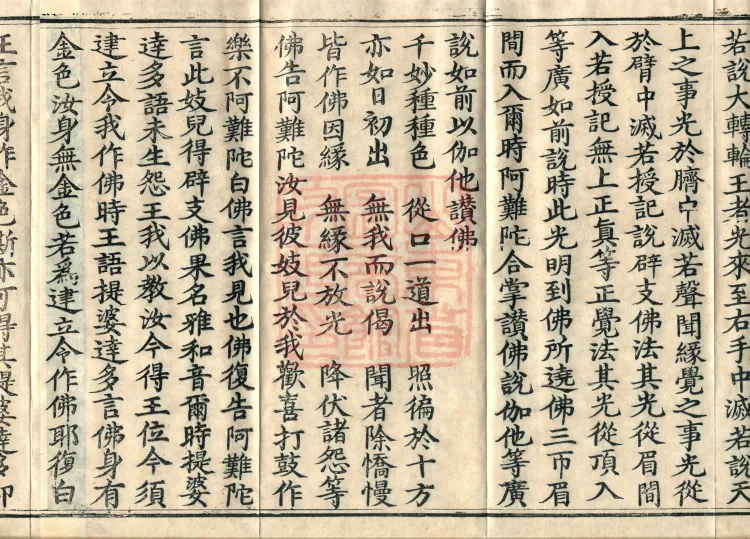 若說大轉輪王者光來至右手中滅若說天
上之事光於臍中滅若聲聞緣覺之事光從
於臂中滅若授記說辟支佛法其光從眉間
入若授記無上正真等正覺法其光從頂入
等廣如前說時此光明到佛所遶佛三帀眉
間而入爾時阿難陀合掌讚佛說伽他等廣
說如前以伽他讚佛
千妙種種色　從口一道出　照徧於十方
亦如日初出　無我而說偈　聞者除憍慢
皆作佛因緣　無緣不放光　降伏諸怨等
佛告阿難陀汝見彼妓兒於我歡喜打鼓作
樂不阿難陀白佛言我見也佛復告阿難陀
言此妓兒得辟支佛果名雅和音爾時提婆
達多語未生怨王我以教汝今得王位今須
建立令我作佛時王語提婆達多言佛身有
金色汝身無金色若為建立令作佛耶復白
王言我身作金色斯亦可得其提婆達多即